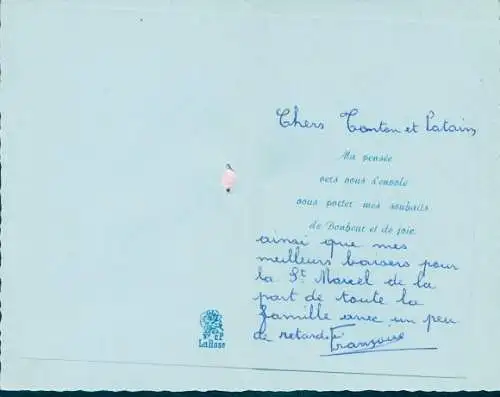 Chers Tonton et Tatain
Ma pensée
vers vous s'envole
vous porter mes souhaits
de Bonheur et de joie.
ainsi que mes
meilleurs baisers pour
la St Marcel de la
part de toute la
famille avec un peu
de retard.
Françoise
EF
LaRose